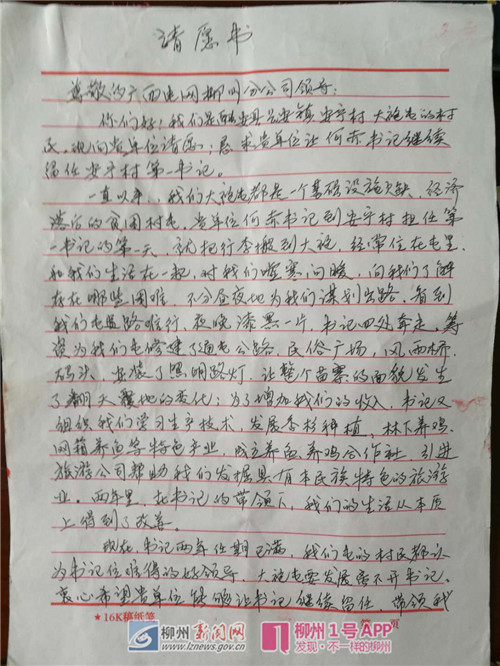 请愿书
尊敬的广西电网柳州分公司领导:
你们好!我们是融安县长安镇安宁村大袍屯的村
民,现向贵单位请愿:恳求贵单位让何亦书记继续
留任安宁村第一书记。
一直以来,我们大袍屯都是一个基础设施欠缺、经济
落后的贫困村屯,贵单位何亦书记到安宁村担任第
一书记的第一天,就把行李搬到大袍,经常住在屯里,
和我们生活在一起,对我们嘘寒问暖,向我们了解
存在哪些困难,不分昼夜地为我们谋划出路,看到
我们屯道路难行,夜晚漆黑一片,书记四处奔走,筹
资为我们屯修建了通屯公路、民俗广场,风雨桥,
码头,安装了照明路灯,让整个苗寨的面貌发生
了翻天覆地的变化;为了增加我们的收入,书记又
组织我们学习生产技术,发展香杉种植,林下养鸡,
网箱养鱼等特色产业,成立养鱼、养鸡合作社,引进
旅游公司帮助我们发掘具有本民族特色的旅游
业。两年里,在书记的带领下,我们的生活从本质
上得到了改善。
现在,书记两年任期已满,我们屯的村民都认
为书记位难得的好领导,大袍屯要发展离不开书记,
衷心希望贵单位能够让书记继续留任,带领我
★16K稿纸笺
页
柳州新闻网
www.lznews.gov.cn
柳州1号APP
发现·不一样的柳州